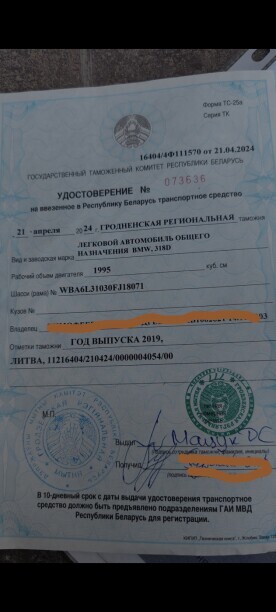 Форма ТС-25а
Серия ТК
16404/4Ф111570 от 21.04.2024
ГОСУДАРСТВЕННЫЙ ТАМОЖЕННЫЙ КОМИТЕТ РЕСПУБЛИКИ БЕЛАРУСЬ
УДОСТОВЕРЕНИЕ № 073636
на ввезенное в Республику Беларусь транспортное средство
21 апреля 2024 ГРОДНЕНСКАЯ РЕГИОНАЛЬНАЯ таможня
ЛЕГКОВОЙ АВТОМОБИЛЬ ОБЩЕГО
Вид и заводская марка НАЗНАЧЕНИЯ BMW, 318D
Рабочий объем двигателя 1995 куб. см
Шасси (рама) № WBA6L31030FJ18071
Кузов №
Владелец
Отметки таможни ГОД ВЫПУСКА 2019,
ЛИТВА, 11216404/210424/0000004054/00
М.П.
Выдал
Получил
В 10-дневный срок с даты выдачи удостоверения транспортное
средство должно быть предъявлено подразделениям ГАИ МВД
Республики Беларусь для регистрации.